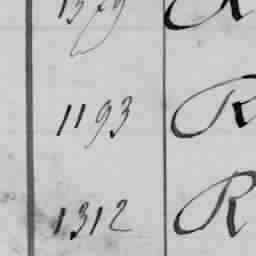 1193 R
1312 R